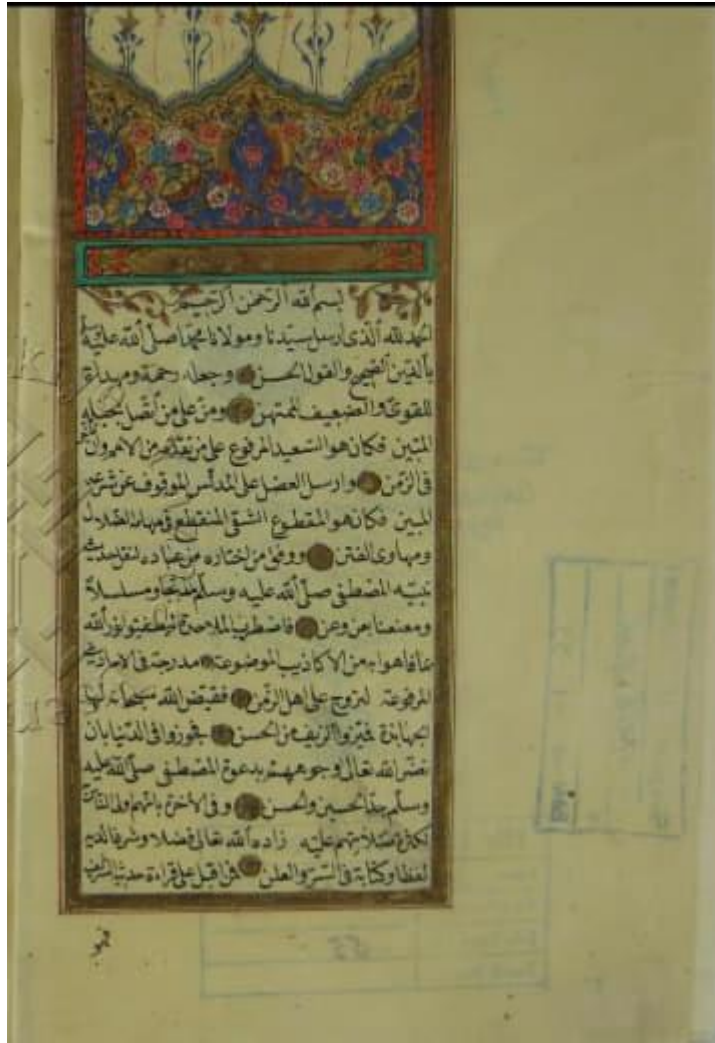 بسم الله الرحمن الرحيم
الحمد لله الذى ارسل سيدنا ومولانا محمدا صلى الله عليه
بالدين الصحيح والقول الحسن وجعله رحمة ومهداة
للقوى والضعيف الممتهن ومن على من اتصل بحبله
المتين فكان هو السعيد المرفوع على من تقدم من الامم وان
فى الزمن وارسل العضل على المدلس الموقوف عن شرعه
المبين فكان هو المقطوع الشقى المنقطع فى مهاد الضلال
ومهاوى الفتن ووفق من اختاره من عباده لنقل حديث
نبيه المصطفى صلى الله عليه وسلم مدبجا ومسلسلا
ومعنعنا بعن وعن فاضطرب الملاحدة ليطفئوا نور الله
بافواههم من الاكاذيب الموضوعة مدرجة فى الاحاديث
المرفوعة لتروج على اهل الزمن فقيض الله سبحانه لها
الجهابذة فميزوا الزيف من الحسن فجوزوا فى الدنيا بان
نضر الله تعالى وجوههم بدعوة المصطفى صلى الله عليه
وسلم جد الحسين والحسن وفى الاخرة بانهم اولى الناس
لكثرة صلاتهم عليه زاده الله تعالى فضلا وشرفا لديه
لفظا وكتابة فى السر والعلن فمن اقبل على قراءة حديثه الشريف